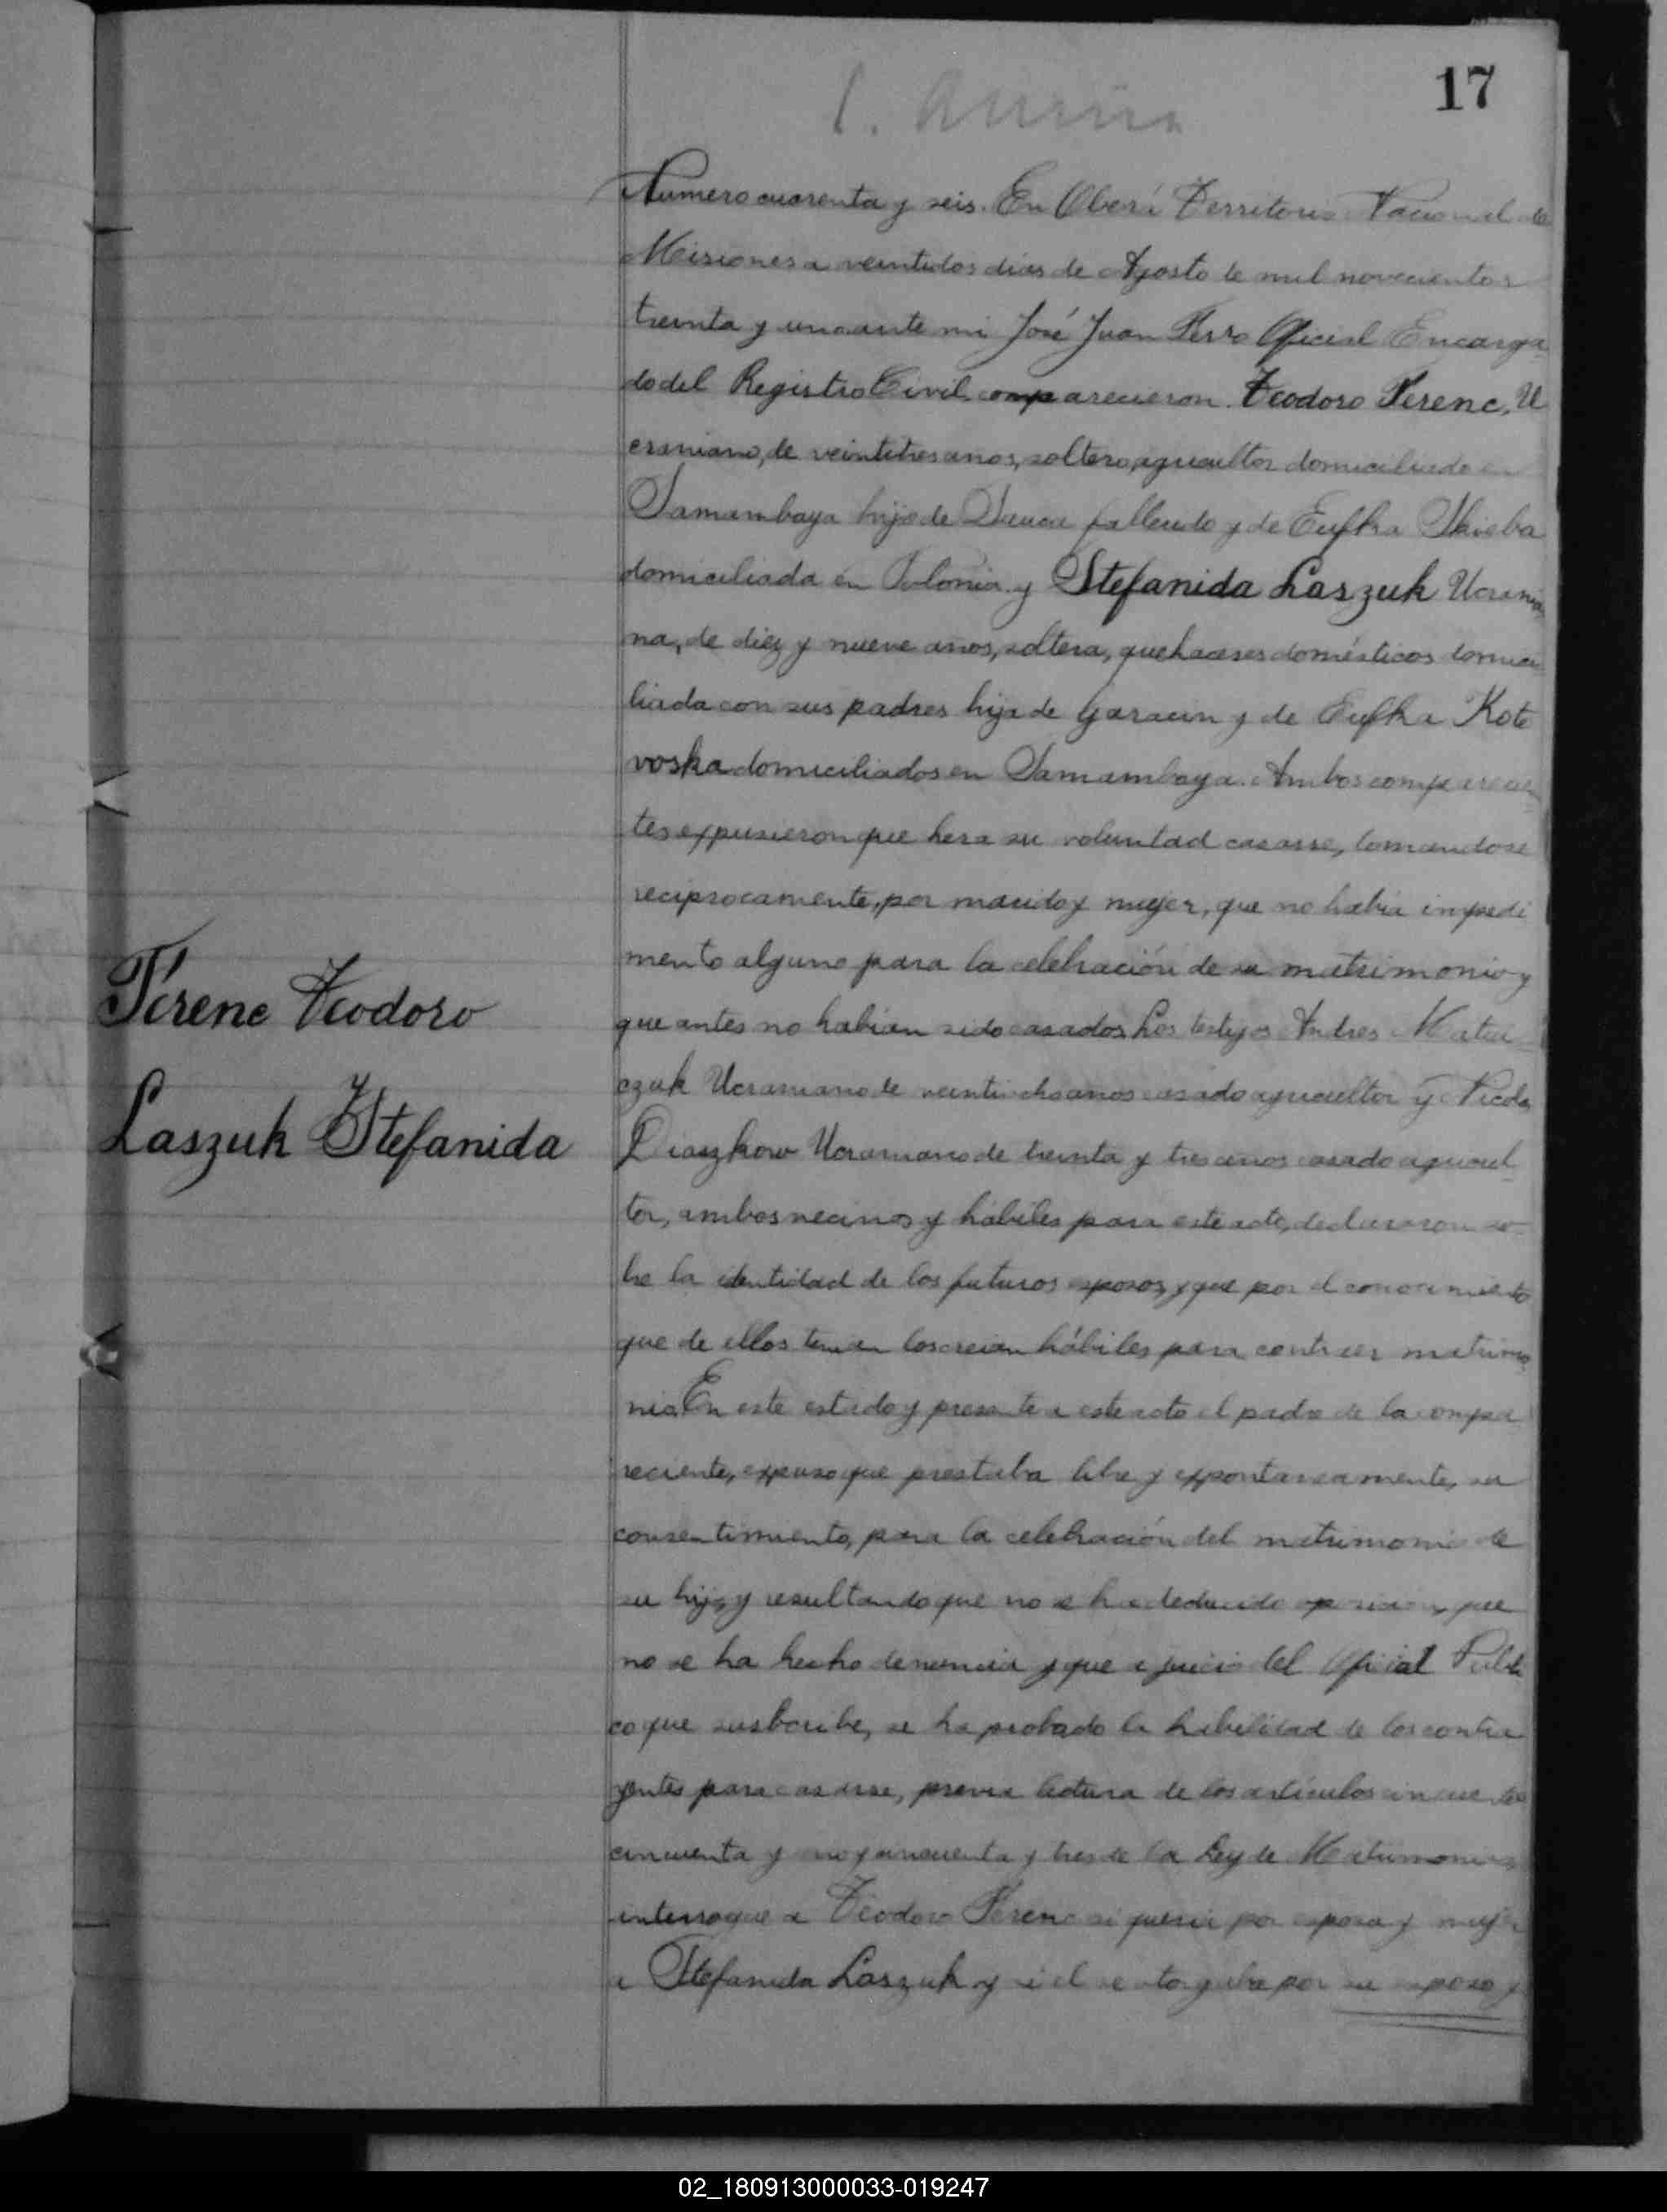 17
Numero cuarenta y seis. En Oberá Territorio Nacional de
Misiones a veintidos dias de Agosto de mil novecientos
treinta y uno ante mi José Juan Ferro Oficial Encarga
do del Registro Civil, comparecieron. Teodoro Ferenc, U
craniano, de veintitres anos, soltero, agricultor domiciliado en
Samambaya hijo de fallecido y de Eufka Skieba
domiciliada en Polonia y Stefanida Laszuk Ucrania
na, de diez y nueve años, soltera, quehaceres domésticos domici
liada con sus padres hija de Garacin y de Eufka Kote
voska domiciliados en Samambaya. Ambos comparecien
tes expusieron que hera su voluntad casarse, tomandose
reciprocamente, por marido y mujer, que no habia impedi
mento alguno para la celebración de su matrimonio y
que antes no habian sido casados. Los testigos Andres Matu
czuk Ucraniano de veintiocho anos casado agricultor y Nicolas
Diaszkow Ucraniano de treinta y tres anos casado agricul
tor, ambos vecinos y hábiles para este acto, declararon so
bre la identidad de los futuros esposos, y que por el conocimiento
que de ellos tenian los creian hábiles para contraer matrimo
nio. En este estado y presente a este acto el padre de la compa
reciente, expuso que prestaba libre y expontaneamente, su
consentimiento, para la celebración del matrimonio de
su hija, y resultando que no se ha deducido oposicion, que
no se ha hecho denuncia y que a juicio del Oficial Publi
co que suscribe, se ha probado la habilidad de los contra
yentes para casarse, previa lectura de los artículos cincuenta
cincuenta y uno y cincuenta y tres de la Ley de Matrimonio
interrogue a Teodoro Ferenc si queria por esposa y mujer
a Stefanida Laszuk y si el se otorgaba por su esposo y
Ferenc Teodoro
Laszuk Stefanida
02_180913000033-019247